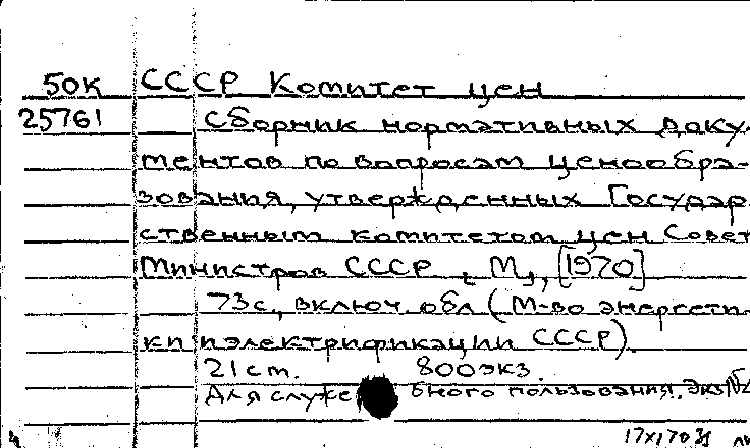 50К СССР Комитет цен
25761 Сборник нормативных доку-
ментов по вопросам ценообра-
зования, утвержденных Государ
ственным комитетом цен Совет
Министров СССР, М., [1970]
73с., включ. обл (М-во энергети-
ки и электрификации СССР).
21 см. 800 экз.
Для служебного пользования. Экз №